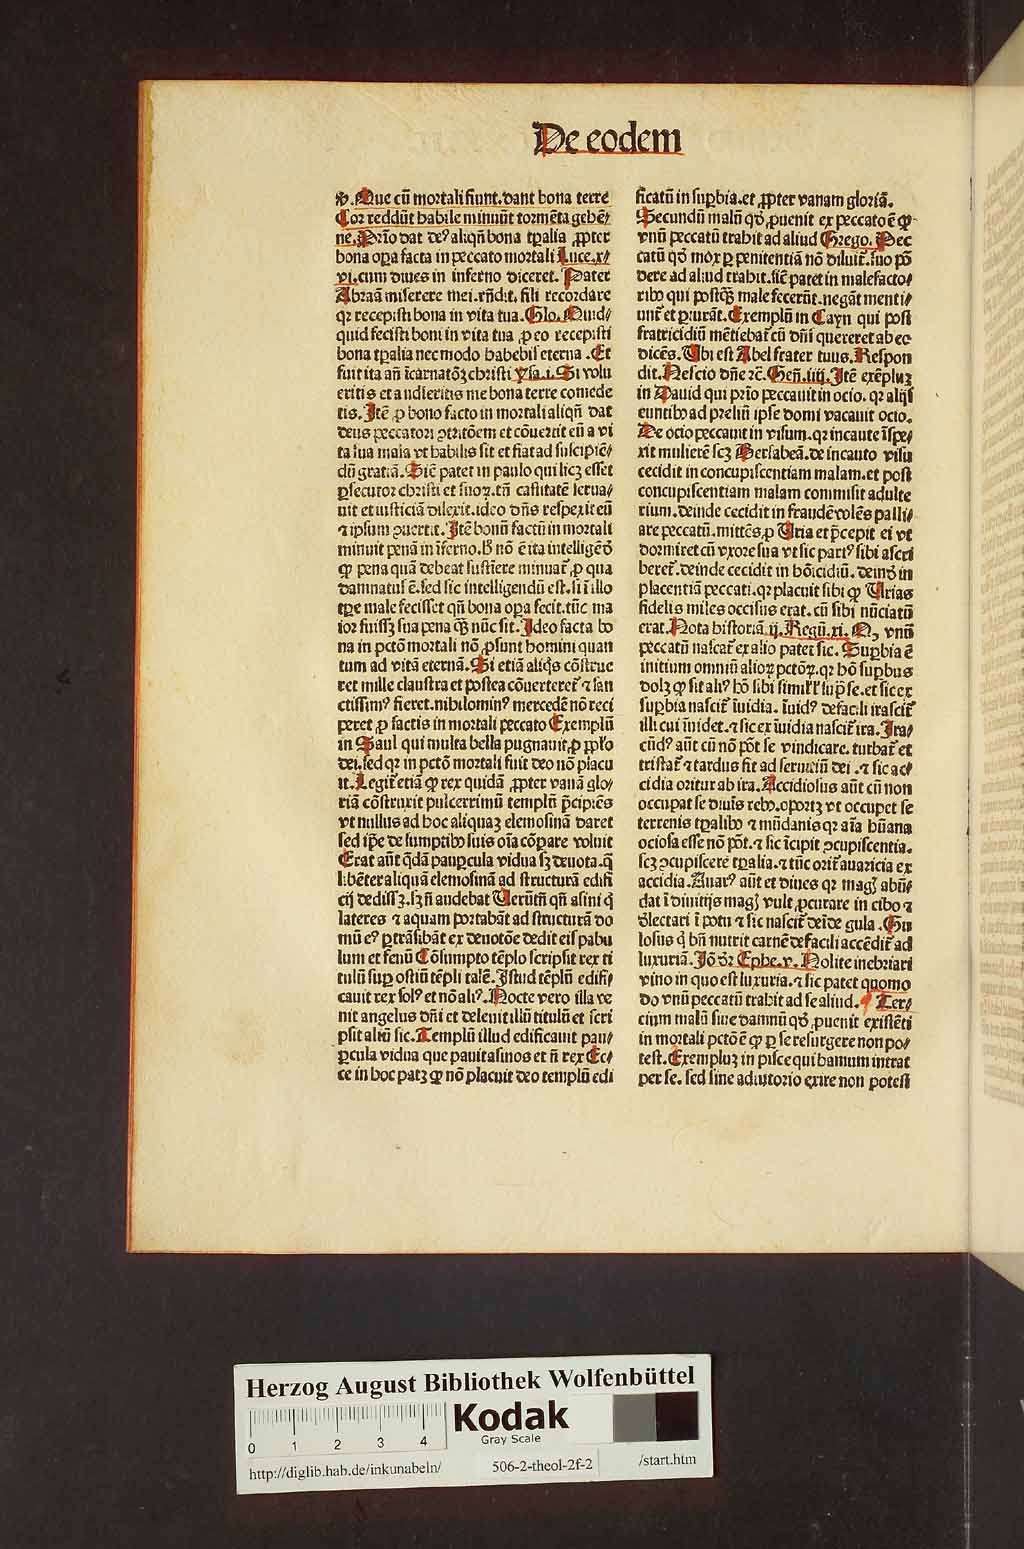 De eodem
ꝟ. Que cū mortali fiunt. dant bona terre
Cor reddūt habile minuūt tormēta gehē⸗
ne. Prīo dat deꝰ aliqñ bona tꝑalia ꝓpter
bona oꝑa facta in peccato mortali Luce. x⸗
vi. cum diues in inferno diceret. Pater
Abraā miserere mei. rñdit. fili recordare
qꝛ recepisti bona in vita tua. Glo. Quid⸗
quid fecisti boni in vita tua ꝓ eo recepisti
bona tꝑalia nec modo habebis eterna. Et
sunt ita añ īcarnatōꝫ christi ysa. i. Si volu
eritis et audieritis me bona terre comede
tis. Itē ꝓ bono facto in mortali aliqñ dat
deus peccatori ꝯtritōem et cōuertit eū a vi
ta sua mala vt habilis sit et fiat ad suscipiē⸗
dū gratiā. Sic̄ patet in paulo qui licꝫ esset
ꝑsecutor christi et suoꝝ. tñ castitatē serua⸗
uit et iusticiā dilexit. ideo dñs respexit eū
⁊ ipsum ꝯuertit. Itē bonū factū in mortali
minuit penā in īferno. hꝫ nō ē ita intelligēdū
ꝙ pena quā debeat sustīere minuat᷑ ꝓ qua
damnatus ē. sed sic intelligendū est. si ī illo
tꝑe male fecisset qñ bona oꝑa fecit. tūc ma
ior fuissꝫ sua pena qꝫ nūc sit. Ideo facta bo
na in pctō mortali nō ꝓsunt homini quan
tum ad vitā eternā. Si etiā aliqͥs cōstrue
ret mille claustra et postea cōuerteret᷑ ⁊ san
ctissimꝰ fieret. nihilominꝰ mercedē nō reci
peret ꝓ factis in mortali peccato Exemplū
in Saul qui multa bella pugnauit ꝓ pp̄lo
dei. sed qꝛ in pctō mortali fuit deo nō placu
it. Legit᷑ etiā ꝙ rex quidā ꝓpter vanā glo⸗
riā cōstruxit pulcerrimū templū p̄cipiēs
vt nullus ad hoc aliquaꝫ elemosinā daret
sed ip̄e de sumptibꝰ suis oīa cōpare voluit
Erat aūt q̄dā pauꝑcula vidua sꝫ deuota. q̄
libēter aliquā elemosinā ad structurā edifi
cij dedissꝫ. sꝫ ñ audebat Uerūtñ qñ asini q̄
lateres ⁊ aquam portabāt ad structurā do
mū eꝰ ꝑtrāsibāt ex deuotōe dedit eis pabu
lum et fenū Cōsumpto tēplo scripsit rex ti
tulū suꝑ ostiū tēpli talē. Istud tēplū edifi⸗
cauit rex solꝰ et nō aliꝰ. Nocte vero illa ve
nit angelus dñi et deleuit illū titulū et scri
psit aliū sic. Templū illud edificauit pau⸗
ꝑcula vidua que pauit asinos et ñ rex Ec⸗
ce in hoc patꝫ ꝙ nō placuit deo templū edi
ficatū in suꝑbia. et ꝓpter vanam gloriā.
Secundū malū qḋ ꝓuenit ex peccato ē ꝙ⸗
vnū peccatū trahit ad aliud Grego. Pec
catū qḋ mox ꝑ penitentiā nō diluit᷑. suo pō
dere ad aliud trahit. sic̄ patet in malefacto⸗
ribꝰ qui postqꝫ male fecerūt. negāt menti⸗
unt᷑ et ꝑiurāt. Exemplū in Cayn qui post
fratricidiū mētiebat᷑ cū dñi quereret ab eo
dicēs. Ubi est Abel frater tuus. Respon
dit. Nescio dñe ⁊c. Geñ. iiij. Itē exēpluꝫ
in Dauid qui prīo peccauit in ocio. qꝛ alijs
euntibꝰ ad preliū ipse domi vacauit ocio.
De ocio peccauit in visum. qꝛ incaute īspe⸗
xit mulierē scꝫ Bersabeā. de incauto visu
cecidit in concupiscentiam malam. et post
concupiscentiam malam commisit adulte
rium. deinde cecidit in fraudē volēs palli⸗
are peccatū. mittēs ꝓ Uria et p̄cepit ei vt
dormiret cū vxore sua vt sic partꝰ sibi ascri
beret᷑. deinde cecidit in hōicidiū. deinḋ in
placentiā peccati. qꝛ placuit sibi ꝙ Urias
fidelis miles occisus erat. cū sibi nūciatū
erat. Nota historiā. ij. Regū. xi. N, vnū
peccatū nascat᷑ ex alio patet sic. Suꝑbia ē
initium omniū alioꝝ pctōꝝ. qꝛ hō suꝑbus
dolꝫ ꝙ sit aliꝰ hō sibi simił̄ł suꝑ se. et sic ex
suꝑbia nascit᷑ īuidia. īuidꝰ de facili irascit᷑
illi cui īuidet. ⁊ sic ex īuidia nascit᷑ ira. Ira⸗
cūdꝰ aūt cū nō pōt se vindicare. turbat᷑ et
tristat᷑ ⁊ tardus fit ad seruiciū dei. ⁊ sic ac⸗
cidia oritur ab ira. Accidiosus aūt cū non
occupat se diuīs rebꝰ. oportꝫ vt occupet se
terrenis tꝑalibꝰ ⁊ mūdanis qꝛ aīa hūana
ociosa esse nō pōt. ⁊ sic īcipit ꝯcupiscentia.
scꝫ ꝯcupiscere tꝑalia. ⁊ tūc orit᷑ auaricia ex
accidia. Auarꝰ aūt et diues qꝛ magꝭ abū⸗
dat ī diuitijs magꝭ vult ꝓcurare in cibo ⁊
ḋlectari ī potu ⁊ sic nascit᷑ deīde gula. Gu
losus q̄ bñ nutrit carnē de facili accēdit᷑ ad
luxuriā. Iō dr̄ Ephe. v. Nolite inebriari
vino in quo est luxuria. ⁊ sic patet quomo
do vnū peccatū trahit ad se aliud. ¶ Ter⸗
cium malū siue damnū qḋ ꝓuenit existēti
in mortali pctō ē ꝙ ꝑ se resurgere non po⸗
test. Exempluꝫ in pisce qui hamum intrat
per se. sed sine adiutorio exire non potest
Herzog August Bibliothek Wolfenbüttel
0 1 2 3 4
Kodak
Gray Scale
http://diglib.hab.de/inkunabeln/ 506-2-theol-2f-2 /start.htm